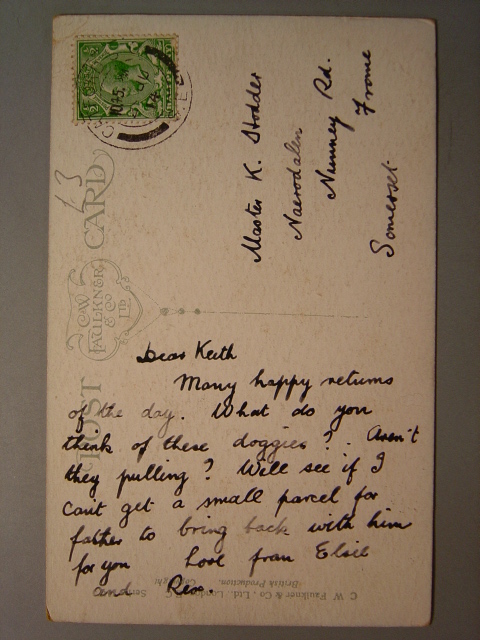 POST CARD
C.W. FAULKNER & CO LTD.
L3
Master K. Stodder
Naerodalen
Nunney Rd.
Frome
Somerset.
Dear Keith
Many happy returns
of the day. What do you
think of these doggies? Aren't
they pulling? Will see if I
can't get a small parcel for
father to bring back with him
for you Love from Elsie
and Rex.
C. W. Faulkner & Co., Ltd. London, E.C.
British Production.